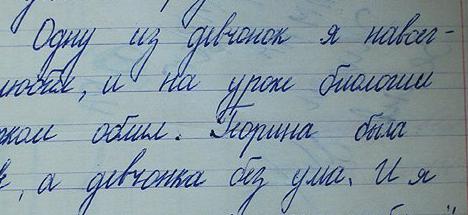 Одну из девчонок я навсег-
и на уроке биологии
облил. Порина была
а девчонка без ума. И я